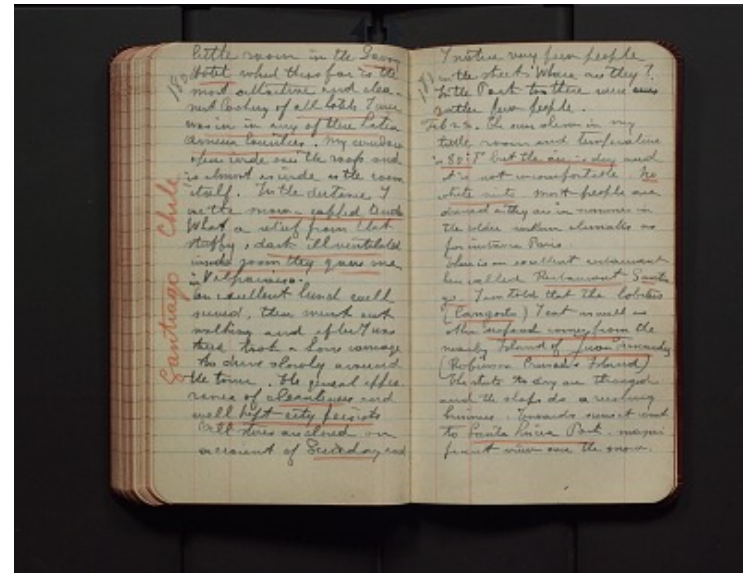 little room in the Savoy
180 Hotel which thus far is the
most attractive and clea-
nest looking of all hotels I ever
was in in any of these Latin
America Countries. My windows
open wide over the roofs and
is almost as wide as the room
itself. In the distance I
see the snow-capped Andes
What a relief from that
stuffy, dark illventilated
inside room they gave me
in Valparaiso.
An excellent lunch well
served, then went out
walking and after I was
tired took a horse carriage
to drive slowly around
the town. The general appea-
rance of cleanliness and
well kept city persists
All stores are closed on
account of Sunday and
Santiago Chile
I notice very few people
181 in the streets. Where are they?
In the Park too there were
rather few people.
Feb 23. The sun shone in my
room and temperature
is 80°F but the air is dry and
it is not uncomfortable. No
white suits most people are
dressed as they are in summer in
the older western climates as
for instance Paris
There is an excellent restaurant
here called Restaurant Santia
go. I was told that the lobsters
(Langosta) I eat as well as
other seafood comes from the
nearby Island of Juan Fernandez
(Robinson Crusoe's Island)
The streets to day are thronged
and the shops do a rushing
business. Towards sunset went
to Santa Lucia Park. magni
ficent view over the snow.